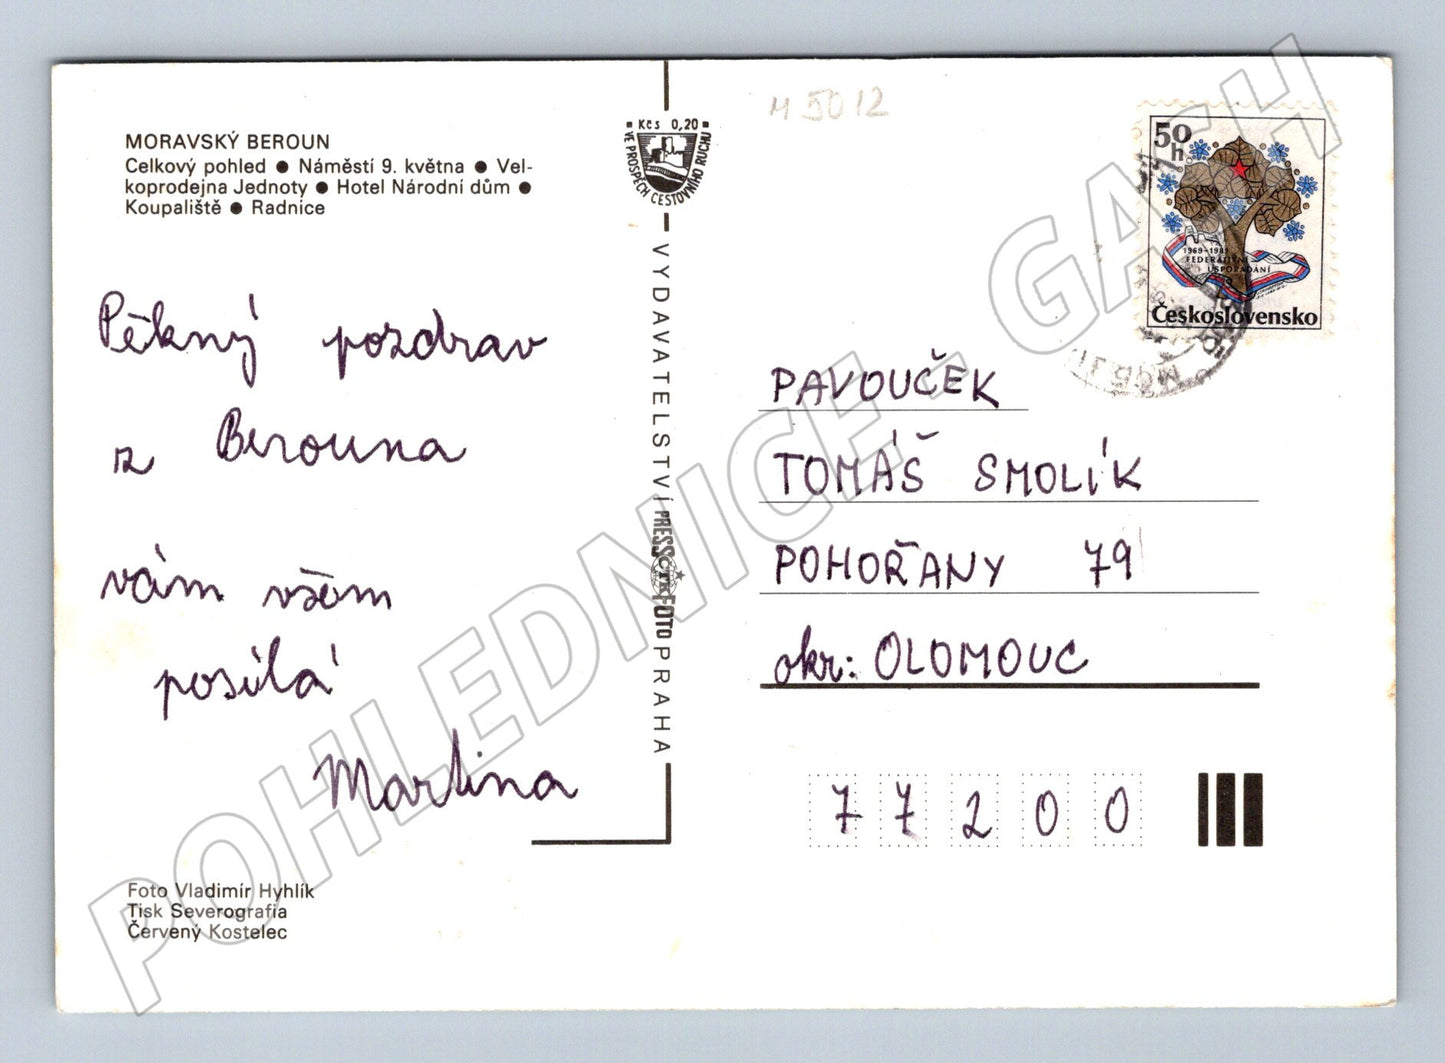 M 5012
MORAVSKÝ BEROUN
Celkový pohled ● Náměstí 9. května ● Vel-
koprodejna Jednoty ● Hotel Národní dům ●
Koupaliště ● Radnice
Kčs 0,20
VE PROSPĚCH CESTOVNÍHO RUCHU
50
h
1969-1989
FEDERATIVNÍ
USPOŘÁDÁNÍ
Československo
Pěkný pozdrav
z Berouna
vám všem
posílá
Martina
VYDAVATELSTVÍ PRESSFOTO PRAHA
ČTK
PAVOUČEK
TOMÁŠ SMOLÍK
POHOŘANY 79
okr: OLOMOUC
77200
Foto Vladimír Hyhlík
Tisk Severografia
Červený Kostelec
POHLEDNICE - GACH